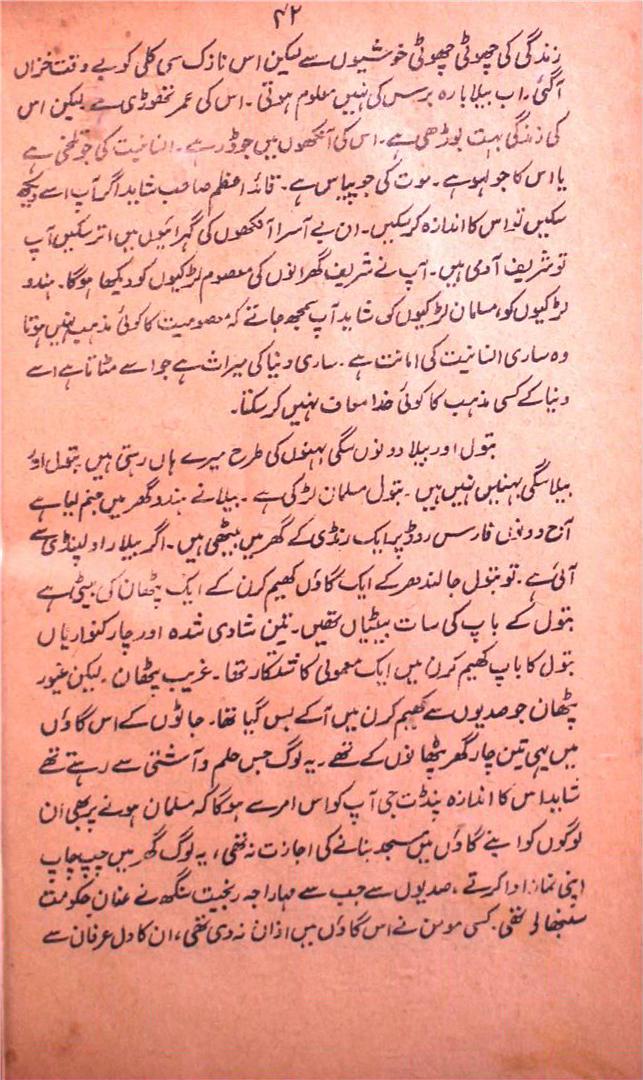 ۴۲
زندگی کی چھوٹی چھوٹی خوشیوں سے لیکن اس نازک سی کلی کو بے وقت خزاں
آگئی۔ اب بیلا بارہ برس کی نہیں معلوم ہوتی۔ اس کی عمر تھوڑی ہے لیکن اس
کی زندگی بہت بوڑھی ہے۔ اس کی آنکھوں میں جو ڈر ہے۔ انسانیت کی جو تلخی ہے
یا اس کا جو لہو ہے۔ موت کی جو پیاس ہے۔ قائد اعظم صاحب شاید اگر آپ اسے دیکھ
سکیں تو اس کا اندازہ کر سکیں۔ ان بے آسرا آنکھوں کی گہرائیوں میں اتر سکیں آپ
تو شریف آدمی ہیں۔ آپ نے شریف گھرانوں کی معصوم لڑکیوں کو دیکھا ہوگا۔ ہندو
لڑکیوں کو، مسلمان لڑکیوں کو، شاید آپ سمجھ جاتے کہ معصومیت کا کوئی مذہب نہیں ہوتا
وہ ساری انسانیت کی امانت ہے۔ ساری دنیا کی میراث ہے جو اسے مٹاتا ہے اسے
دنیا کے کسی مذہب کا کوئی خدا معاف نہیں کر سکتا۔
بتول اور بیلا دونوں سگی بہنوں کی طرح میرے ہاں رہتی ہیں۔ بتول اور
بیلا سگی بہنیں نہیں ہیں۔ بتول مسلمان لڑکی ہے۔ بیلا نے ہندو گھر میں جنم لیا ہے
آج دونوں فارس روڈ پر ایک رنڈی کے گھر میں بیٹھی ہیں۔ اگر بیلا راولپنڈی سے
آئی ہے۔ تو بتول جالندھر کے ایک گاؤں کھیم کرن کے ایک پٹھان کی بیٹی ہے
بتول کے باپ کی سات بیٹیاں تھیں۔ تین شادی شدہ اور چار کنواریاں
بتول کا باپ کھیم کرن میں ایک معمولی کاشتکار تھا۔ غریب پٹھان۔ لیکن غیور
پٹھان جو صدیوں سے کھیم کرن میں آ کے بس گیا تھا۔ جاٹوں کے اس گاؤں
میں یہی تین چار گھر پٹھانوں کے تھے۔ یہ لوگ جس حلم و آشتی سے رہتے تھے
شاید اس کا اندازہ پنڈت جی آپ کو اس امر سے ہوگا کہ مسلمان ہونے پر بھی ان
لوگوں کو اپنے گاؤں میں مسجد بنانے کی اجازت نہ تھی، یہ لوگ گھر میں چپ چاپ
اپنی نماز ادا کرتے، صدیوں سے جب سے مہاراجہ رنجیت سنگھ نے عنان حکومت
سنبھالی تھی۔ کسی مومن نے اس گاؤں میں اذان نہ دی تھی، ان کا دل عرفان سے